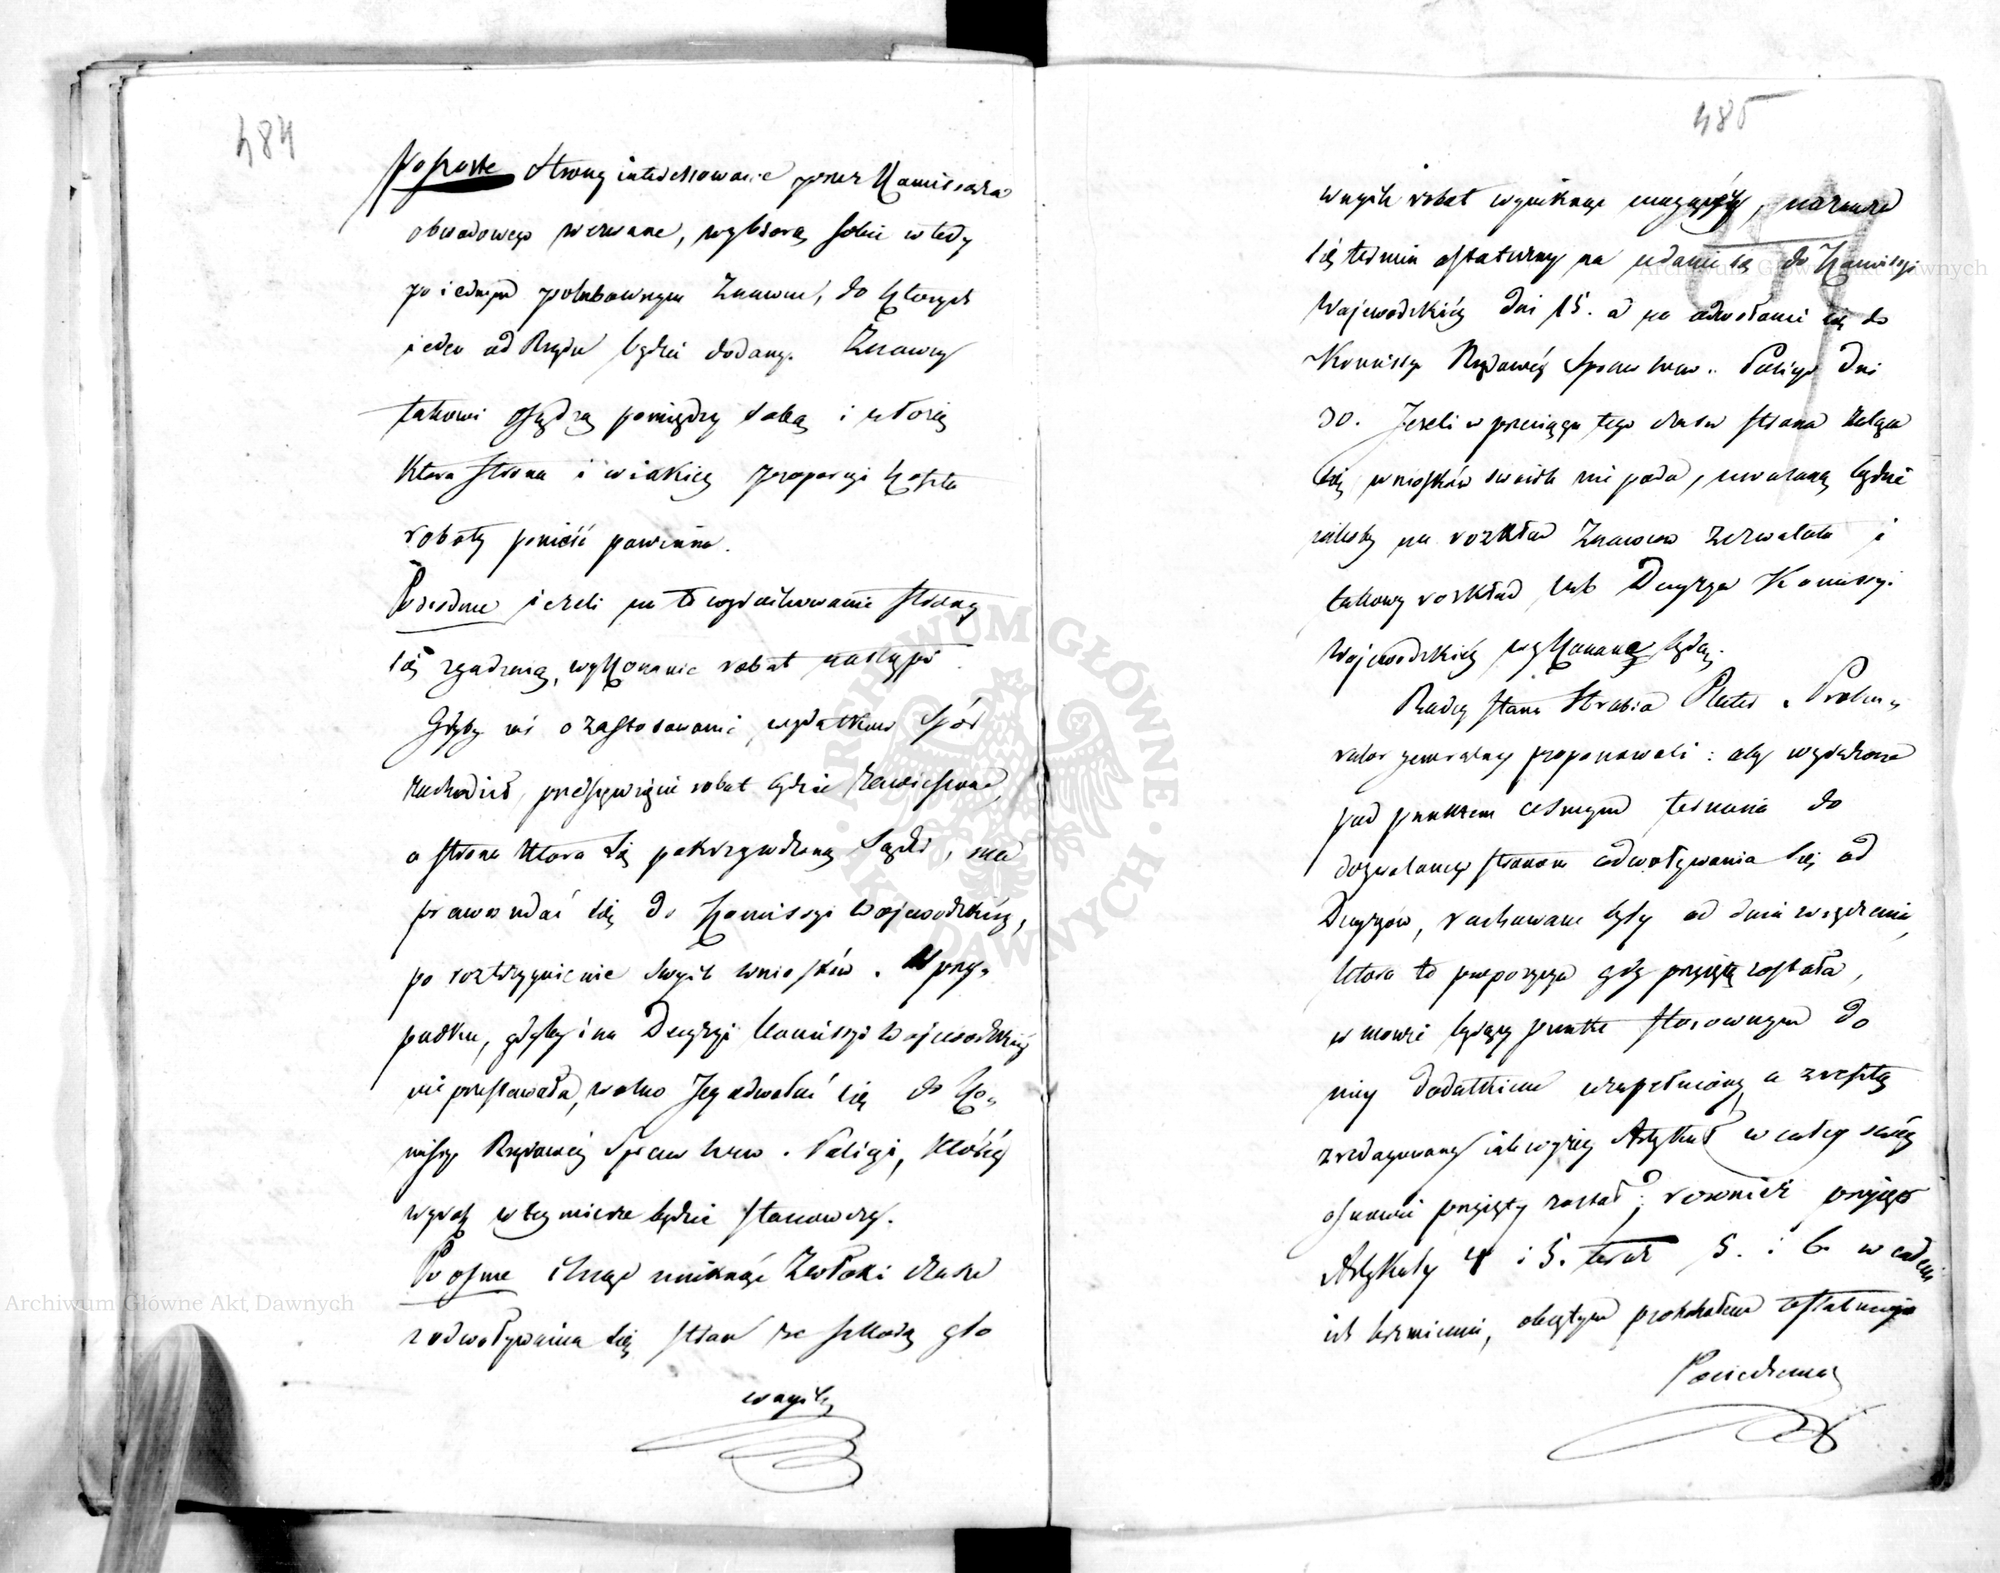 484
Po szoste Strony interessowane przez Kommissarza
obwodowego wezwane, wybiorą sobie wtedy
po iednym polubownym Znawcu, do których
ieden od Rządu będzie dodany. Znawcy
takowi osądzą pomiędzy sobą i ułożą
która strona i w iakiey proporcyi koszta
roboty ponieść powinna.
Po siodme ieżeli na to wyrachowanie strony
się zgadzaią, wykonanie robot nastąpi
Gdyby zaś o zastosowanie wydatków spór
zachodził, przedsięwzięcie robot będzie zawieszone,
a strona która się pokrzywdzoną sądzi, ma
prawo udać się do Kommissyi Wojewodzkiey,
po roztrzygnienie swych wniosków. W przy-
padku, gdyby i na Decyzyi Kommissyi Wojewodzkiey
nie przestawała, wolno Jey odwołać się do Ko-
missyi Rządowey Spraw Wew. i Policyi, któréy
wyrok w tey mierze będzie stanowczy.
Po osme ileby uniknąć Zwłoki czasu
z odwoływania się stron ze szkodą głó
wnych
485
wnych robot wyniknąć mogącéy, oznacza
się termin ostateczny na udanie się do Kommissyi
Wojewodzkiéy dni 15. a na odwołanie się do
Kommissyi Rządowéy Spraw Wew. i Policyi dni
30. Jeżeli w przeciągu tego czasu strona żaląca
się, wniosków swoich nie poda, uważaną będzie
iakoby na rozkład Znawców zezwalała i
takowy rozkład lub Decyzya Kommissyi
Wojewodzkiéy wykonaną będą.
Radcy Stanu Hrabia Plater i Proku-
rator generalny proponowali: aby wyrażone
pod punktem osmym termina do
dozwalanego stronom odwoływania się od
Decyzyów, rachowane były od dnia wręczenia,
która to propozycya gdy przyjętą została,
w mowie będący punkt stosownym do
niey dodatkiem uzupełniony, a zresztą
zredagowany iak wyżey Artykuł w całey swéy
osnowie przyjęty został; rownież przyjęto
Artykuły 4 i 5. teraz 5. i 6. w całem
ich brzmieniu, objętym protokułem ostatniego
Posiedzenia
Archiwum Główne Akt Dawnych
Archiwum Główne Akt Dawnych
ARCHIWUM GŁÓWNE
AKT DAWNYCH